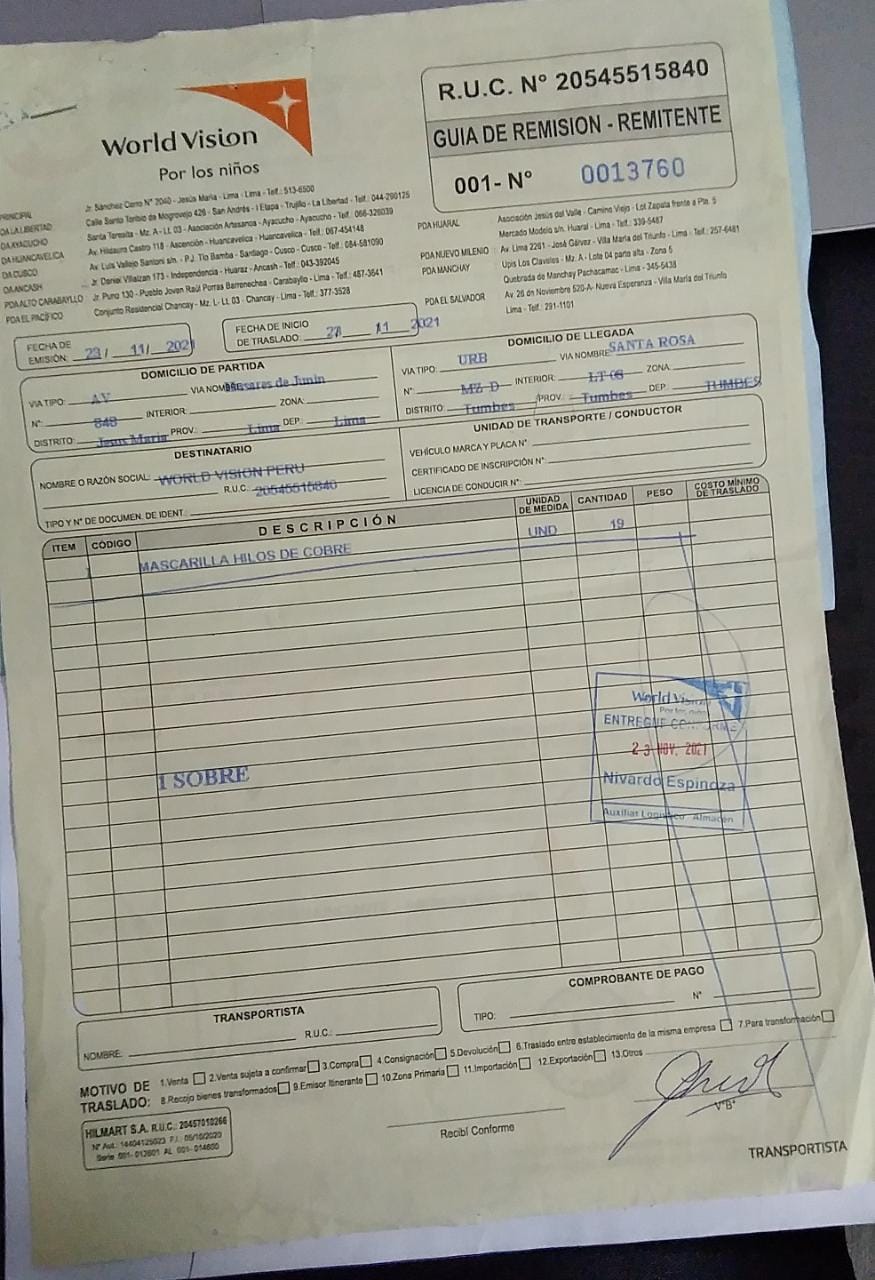 World Vision
Por los niños
R.U.C. N° 20545515840
GUIA DE REMISION - REMITENTE
001- N° 0013760
PRINCIPAL Jr. Sánchez Cerro N° 2040 - Jesús María - Lima - Lima - Telf.: 513-6500
DA LA LIBERTAD Calle Santo Toribio de Mogrovejo 426 - San Andrés - I Etapa - Trujillo - La Libertad - Telf.: 044-290125
DA AYACUCHO Santa Teresita - Mz. A - Lt. 03 - Asociación Artesanos - Ayacucho - Ayacucho - Telf.: 066-326039
DA HUANCAVELICA Av. Hildauro Castro 118 - Ascención - Huancavelica - Huancavelica - Telf.: 067-454148
DA CUSCO Av. Luis Vallejo Santoni s/n. - P.J. Tío Bamba - Santiago - Cusco - Cusco - Telf.: 084-581090
DA ANCASH Jr. Daniel Villaizan 173 - Independencia - Huaraz - Ancash - Telf.: 043-392045
PDA ALTO CARABAYLLO Jr. Puno 130 - Pueblo Joven Raúl Porras Barrenechea - Carabayllo - Lima - Telf.: 487-3641
PDA EL PACÍFICO Conjunto Residencial Chancay - Mz. L- Lt. 03 - Chancay - Lima - Telf.: 377-3528
PDA HUARAL Asociación Jesús del Valle - Camino Viejo - Lot Zapata frente a Pta. 5
Mercado Modelo s/n. Huaral - Lima - Telf.: 339-5487
PDA NUEVO MILENIO Av. Lima 2261 - José Gálvez - Villa María del Triunfo - Lima - Telf.: 257-6481
PDA MANCHAY Upis Los Claveles - Mz. A - Lote 04 parte alta - Zona 5
Quebrada de Manchay Pachacamac - Lima - 345-5438
PDA EL SALVADOR Av. 26 de Noviembre 520-A- Nueva Esperanza - Villa María del Triunfo
Lima - Telf.: 291-1101
FECHA DE
EMISIÓN: 23 / 11/ 2021
FECHA DE INICIO
DE TRASLADO: 23 11 2021
DOMICILIO DE PARTIDA
VIA TIPO: AV VIA NOMBRE: Husares de Junin
N°: 848 INTERIOR: ZONA:
DISTRITO: Jesus Maria PROV.: Lima DEP.: Lima
DOMICILIO DE LLEGADA
VIA TIPO: URB VIA NOMBRE: SANTA ROSA
N°: MZ D INTERIOR: LT 08 ZONA:
DISTRITO: Tumbes PROV.: Tumbes DEP.: TUMBES
DESTINATARIO
NOMBRE O RAZÓN SOCIAL: WORLD VISION PERU
R.U.C.: 20545515840
TIPO Y N° DE DOCUMEN. DE IDENT.:
UNIDAD DE TRANSPORTE / CONDUCTOR
VEHÍCULO MARCA Y PLACA N°:
CERTIFICADO DE INSCRIPCIÓN N°:
LICENCIA DE CONDUCIR N°:
ITEM CÓDIGO DESCRIPCIÓN UNIDAD DE MEDIDA CANTIDAD PESO COSTO MÍNIMO DE TRASLADO
1 MASCARILLA HILOS DE COBRE UND 19
World Vision
Por los niños
ENTREGUE CONFORME
23 NOV. 2021
1 SOBRE
Nivardo Espinoza
Auxiliar Logístico - Almacén
TRANSPORTISTA
NOMBRE: R.U.C.:
COMPROBANTE DE PAGO
TIPO: N°
MOTIVO DE TRASLADO: 1.Venta 2.Venta sujeta a confirmar 3.Compra 4.Consignación 5.Devolución 6.Traslado entre establecimiento de la misma empresa 7.Para transformación
8.Recojo bienes transformados 9.Emisor Itinerante 10.Zona Primaria 11.Importación 12.Exportación 13.Otros
HILMART S.A. R.U.C.: 20457010266
N° Aut.: 14404125023 F.I.: 05/10/2020
Serie 001- 012601 AL 001- 014600
Recibí Conforme
V°B°
TRANSPORTISTA